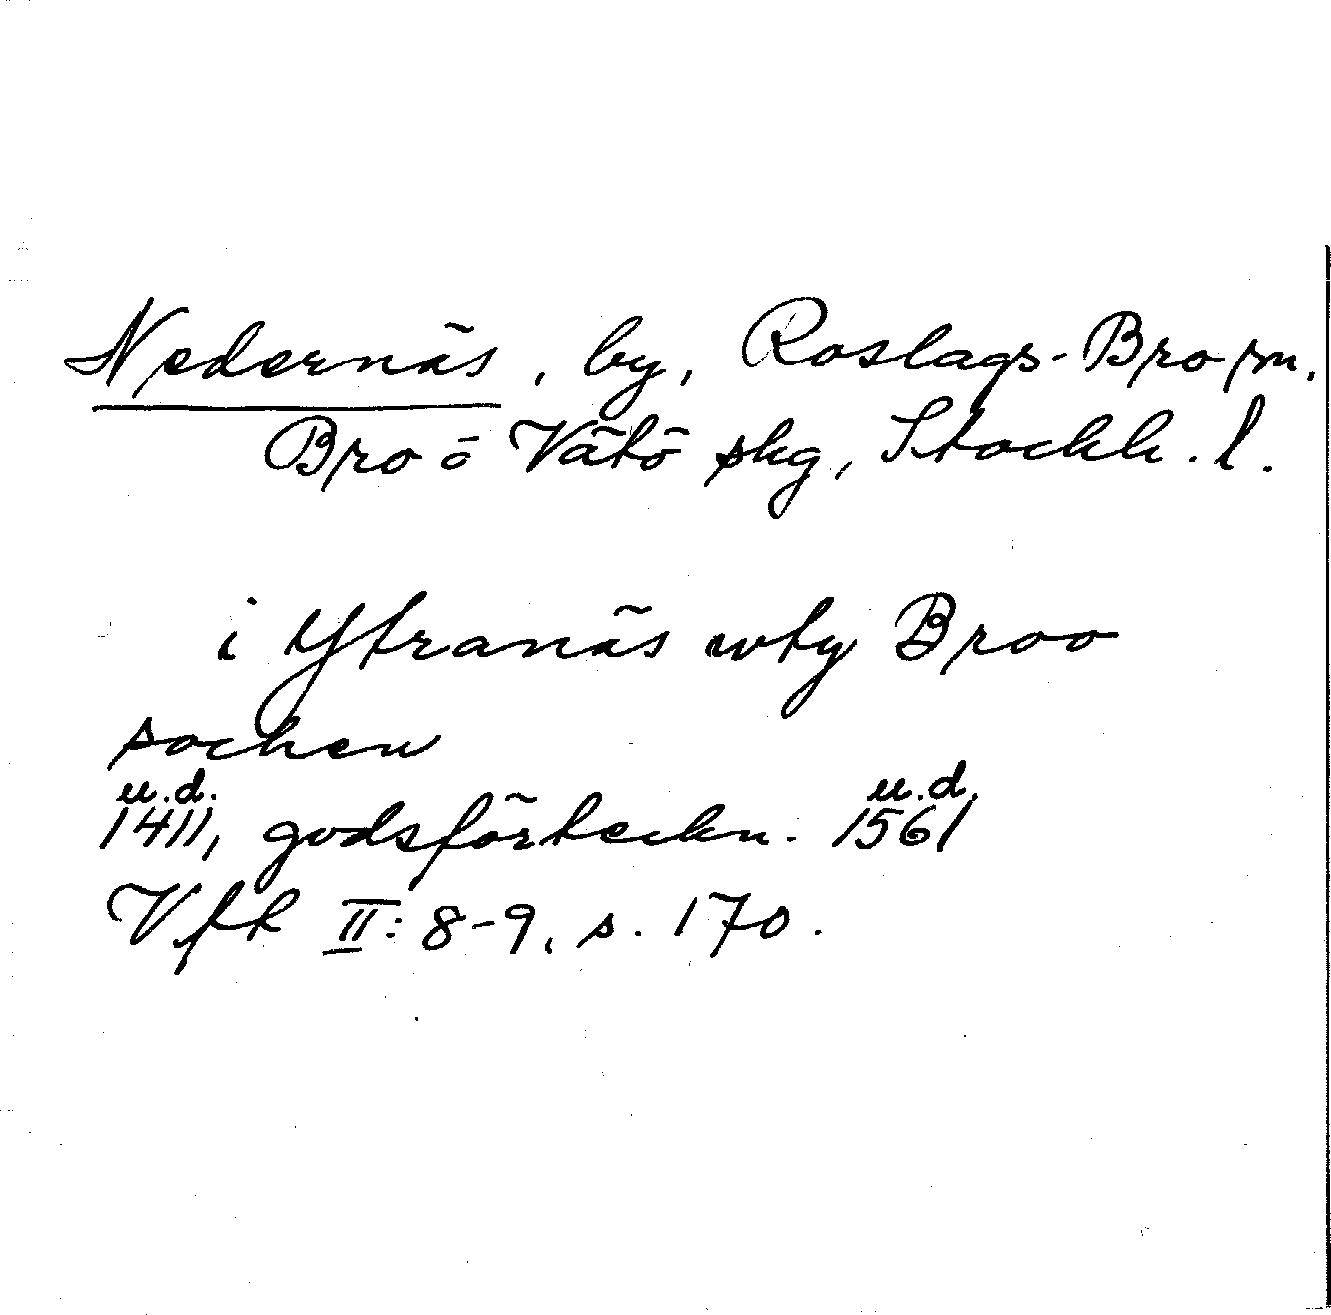 Nedernäs, by, Roslags-Bro sn.
Bro o Vätö skg, Stockh. l.
i Ytranäs wty Broo
sochen
u.d. u.d.
1411, godsförteckn. 1561
Vfk II: 8-9, s. 170.